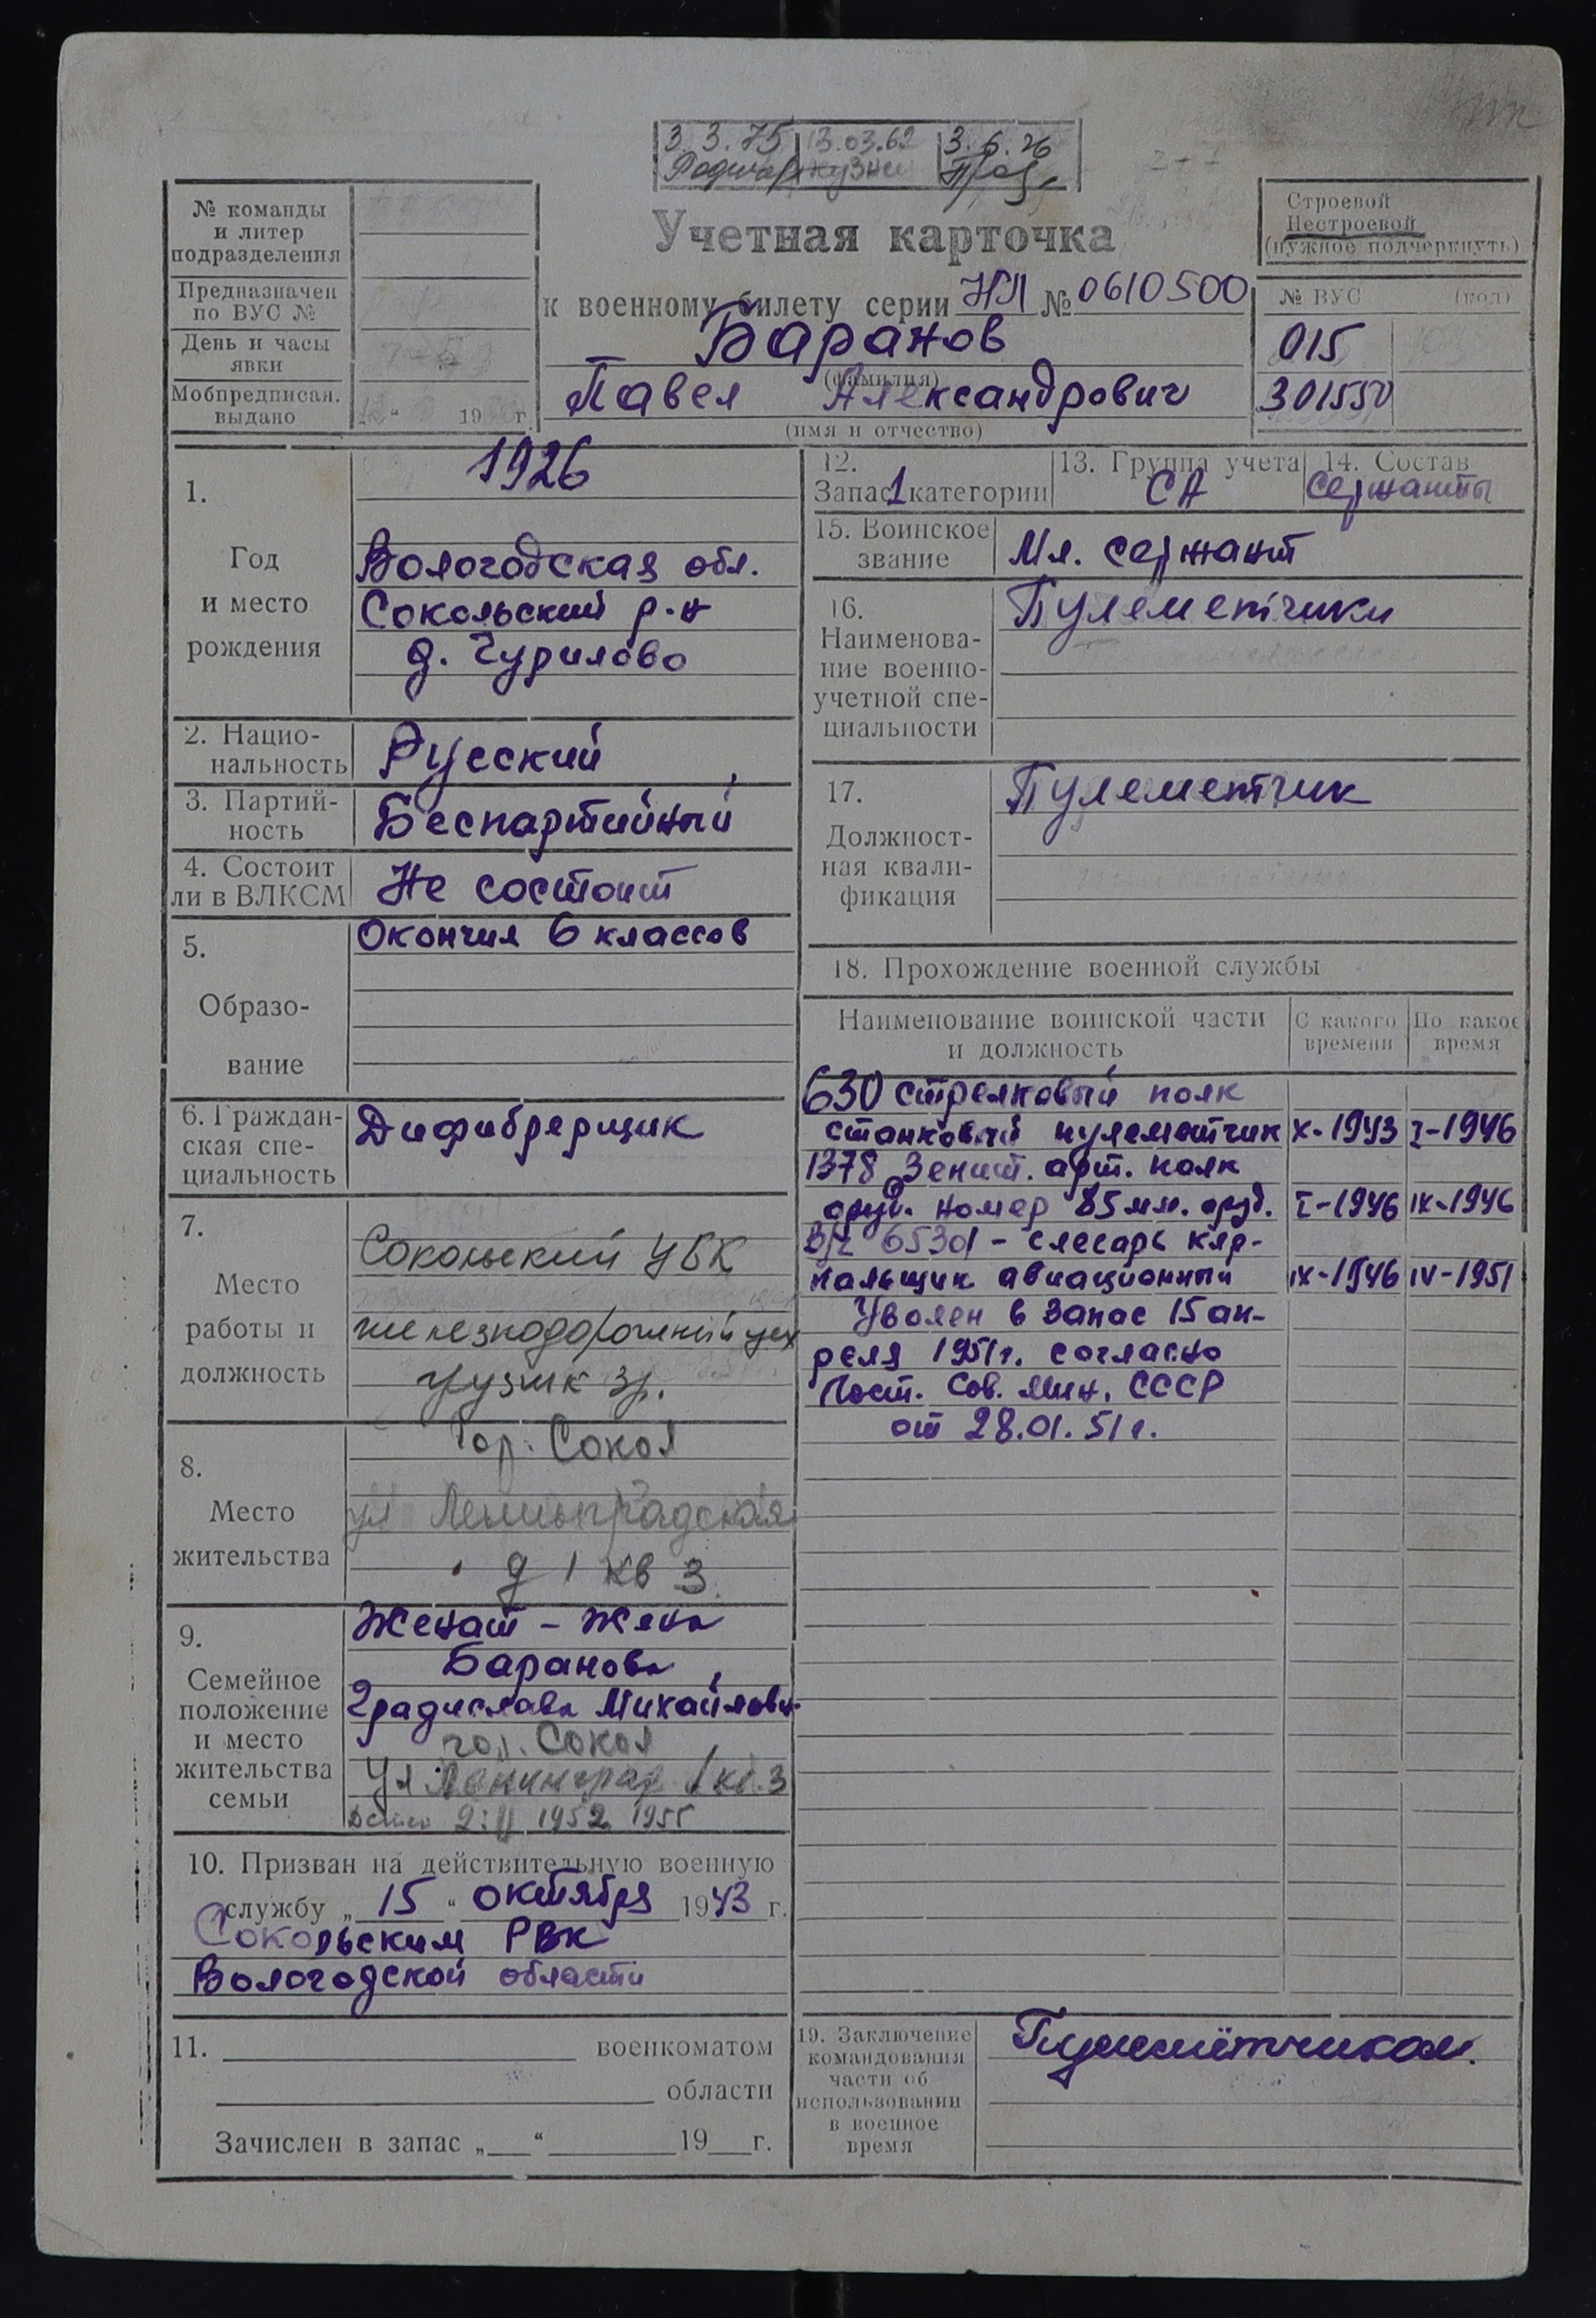 3.3.75 13.03.62 3.6.76
№ команды
и литер
подразделения
Предназначен
по ВУС №
День и часы
явки
Мобпредписан.
выдано
19 г.
Учетная карточка
к военному билету серии НЛ № 0610500
Баранов
(фамилия)
Павел Александрович
(имя и отчество)
Строевой
Нестроевой
(нужное подчеркнуть)
№ ВУС (кол)
015
301550
1.
Год
и место
рождения
1926
Вологодская обл.
Сокольский р-н
д. Чурилово
2. Нацио-
нальность
Русский
3. Партий-
ность
Беспартийный
4. Состоит
ли в ВЛКСМ
Не состоит
5.
Образо-
вание
Окончил 6 классов
6. Граждан-
ская спе-
циальность
Дифибрерщик
7.
Место
работы и
должность
Сокольский ЦБК
железнодорожный цех
грузчик
8.
Место
жительства
Гор. Сокол
ул Ленинградская
д 1 кв 3
9.
Семейное
положение
и место
жительства
семьи
Женат – жена
Баранова
Градислава Михайловн.
гор. Сокол
Ул Ленинград 1 кв. 3
1952 1955
10. Призван на действительную военную
службу „15“ октября 1943 г.
Сокольским РВК
Вологодской области
11. военкоматом
области
Зачислен в запас „ “ 19 г.
12.
Запас 1 категории
13. Группа учета
СА
14. Состав
Сержанты
15. Воинское
звание
Мл. сержант
16.
Наименова-
ние военно-
учетной спе-
циальности
Пулеметчики
17.
Должност-
ная квали-
фикация
Пулеметчик
18. Прохождение военной службы
Наименование воинской части
и должность
С какого
времени
По какое
время
630 стрелковый полк
станковый пулеметчик X-1943 I-1946
1378 Зенит. арт. полк
оруд. номер 85 мм. оруд. I-1946 IX-1946
В/ч 65301 – слесарь кар-
нальщик авиационный IX-1946 IV-1951
Уволен в запас 15 ап-
реля 1951г. согласно
Пост. Сов. Мин. СССР
от 28.01.51г.
19. Заключение
командования
части об
использовании
в военное
время
Пулемётчиком.